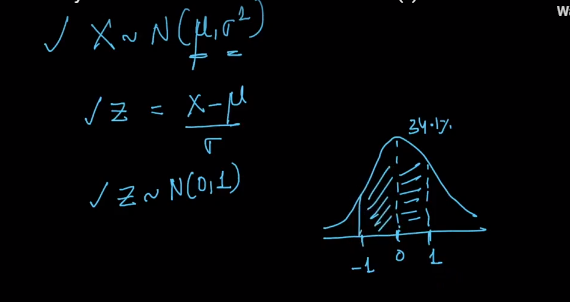 ✓ X ~ N(μ, σ²)
✓ Z = (X - μ) / σ
✓ Z ~ N(0, 1)
34.1%
-1 0 1